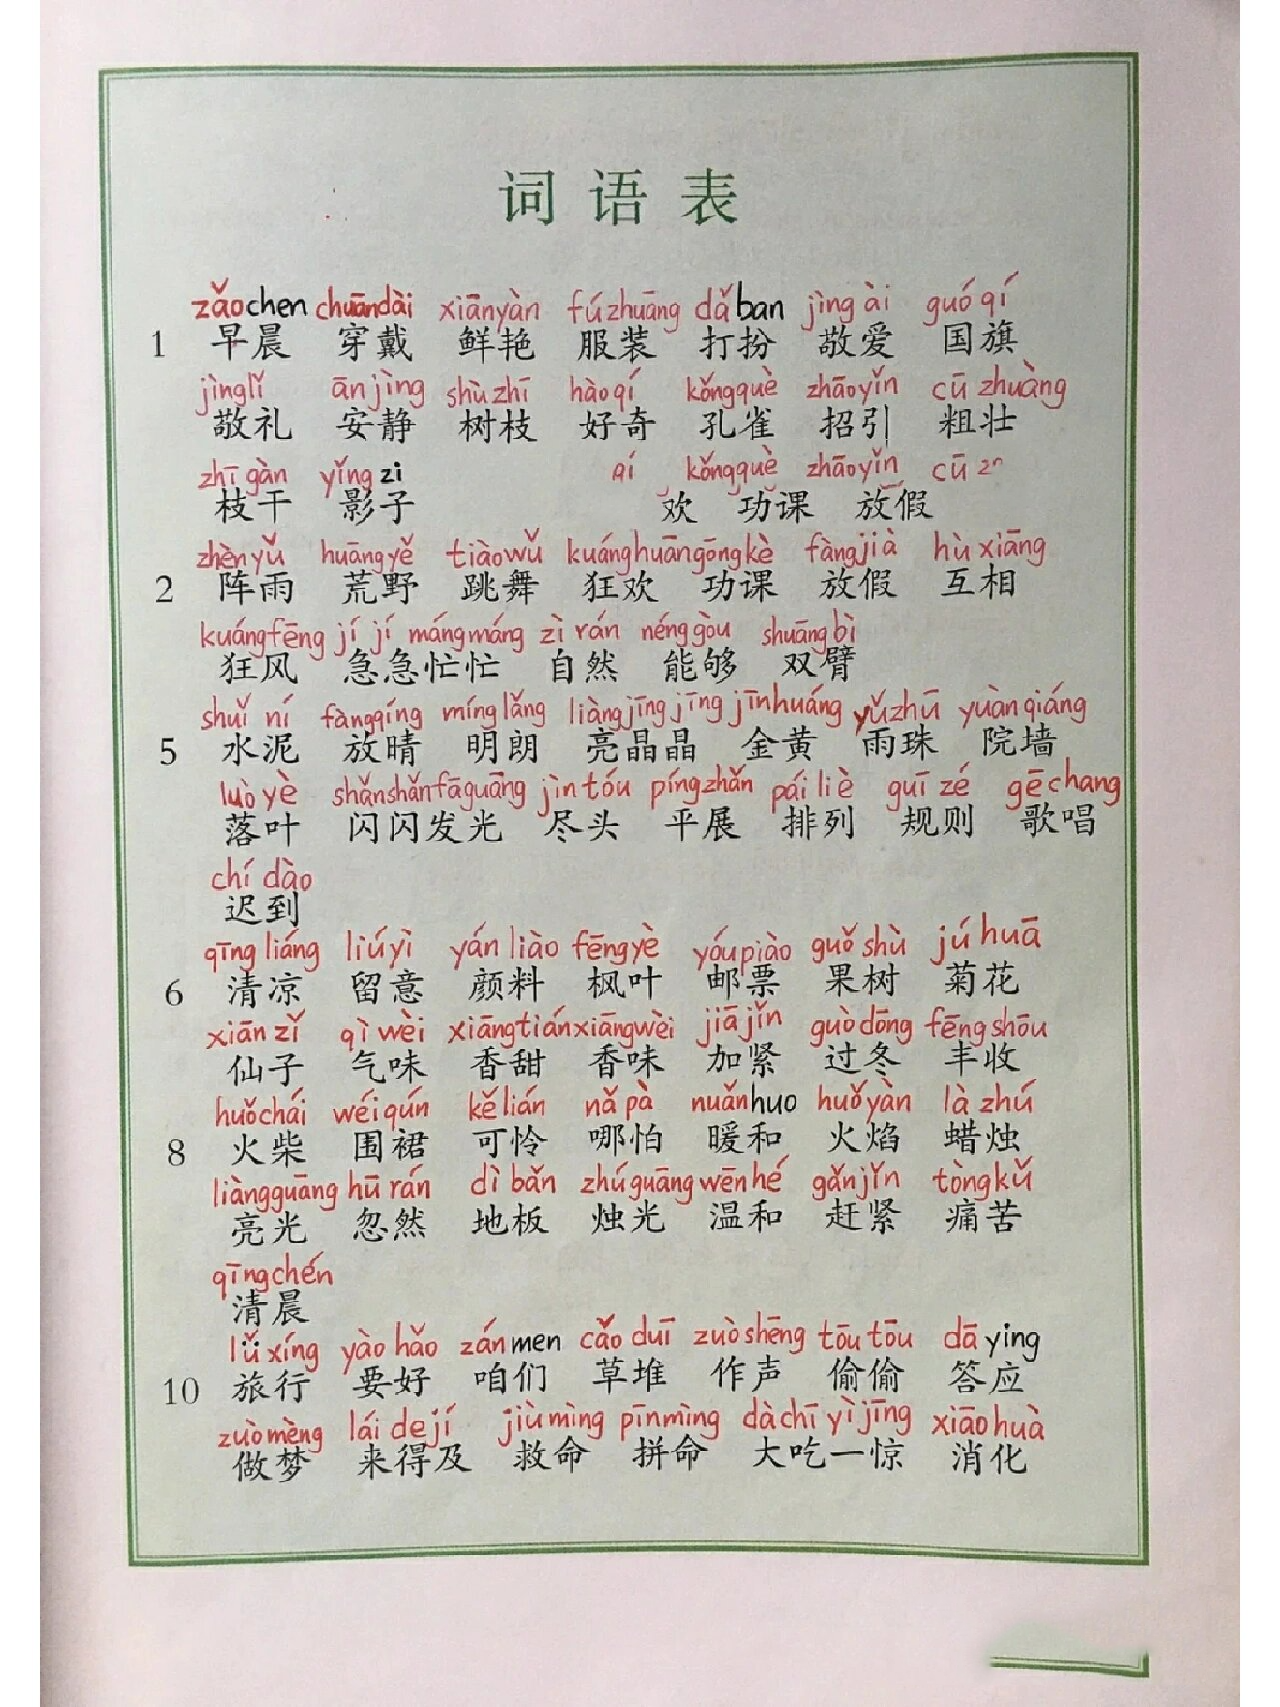 词语表
zǎochen chuāndài xiānyàn fúzhuāng dǎban jìngài guóqí
1 早晨 穿戴 鲜艳 服装 打扮 敬爱 国旗
jìnglǐ ānjìng shùzhī hàoqí kǒngquè zhāoyǐn cūzhuàng
敬礼 安静 树枝 好奇 孔雀 招引 粗壮
zhīgàn yǐngzi kǒngquè zhāoyǐn cū
枝干 影子 欢 功课 放假
zhènyǔ huāngyě tiàowǔ kuánghuān gōngkè fàngjià hùxiāng
2 阵雨 荒野 跳舞 狂欢 功课 放假 互相
kuángfēng jíjímángmáng zìrán nénggòu shuāngbì
狂风 急急忙忙 自然 能够 双臂
shuǐní fàngqíng mínglǎng liàngjīngjīng jīnhuáng yǔzhū yuànqiáng
5 水泥 放晴 明朗 亮晶晶 金黄 雨珠 院墙
luòyè shǎnshǎnfāguāng jìntóu píngzhǎn páiliè guīzé gēchang
落叶 闪闪发光 尽头 平展 排列 规则 歌唱
chídào
迟到
qīngliáng liúyì yánliào fēngyè yóupiào guǒshù júhuā
6 清凉 留意 颜料 枫叶 邮票 果树 菊花
xiānzǐ qìwèi xiāngtián xiāngwèi jiājǐn guòdōng fēngshōu
仙子 气味 香甜 香味 加紧 过冬 丰收
huǒchái wéiqún kělián nǎpà nuǎnhuo huǒyàn làzhú
8 火柴 围裙 可怜 哪怕 暖和 火焰 蜡烛
liàngguāng hūrán dìbǎn zhúguāng wēnhé gǎnjǐn tòngkǔ
亮光 忽然 地板 烛光 温和 赶紧 痛苦
qīngchén
清晨
lǚxíng yàohǎo zánmen cǎoduī zuòshēng tōutōu dāying
10 旅行 要好 咱们 草堆 作声 偷偷 答应
zuòmèng láidejí jiùmìng pīnmìng dàchīyìjīng xiāohuà
做梦 来得及 救命 拼命 大吃一惊 消化